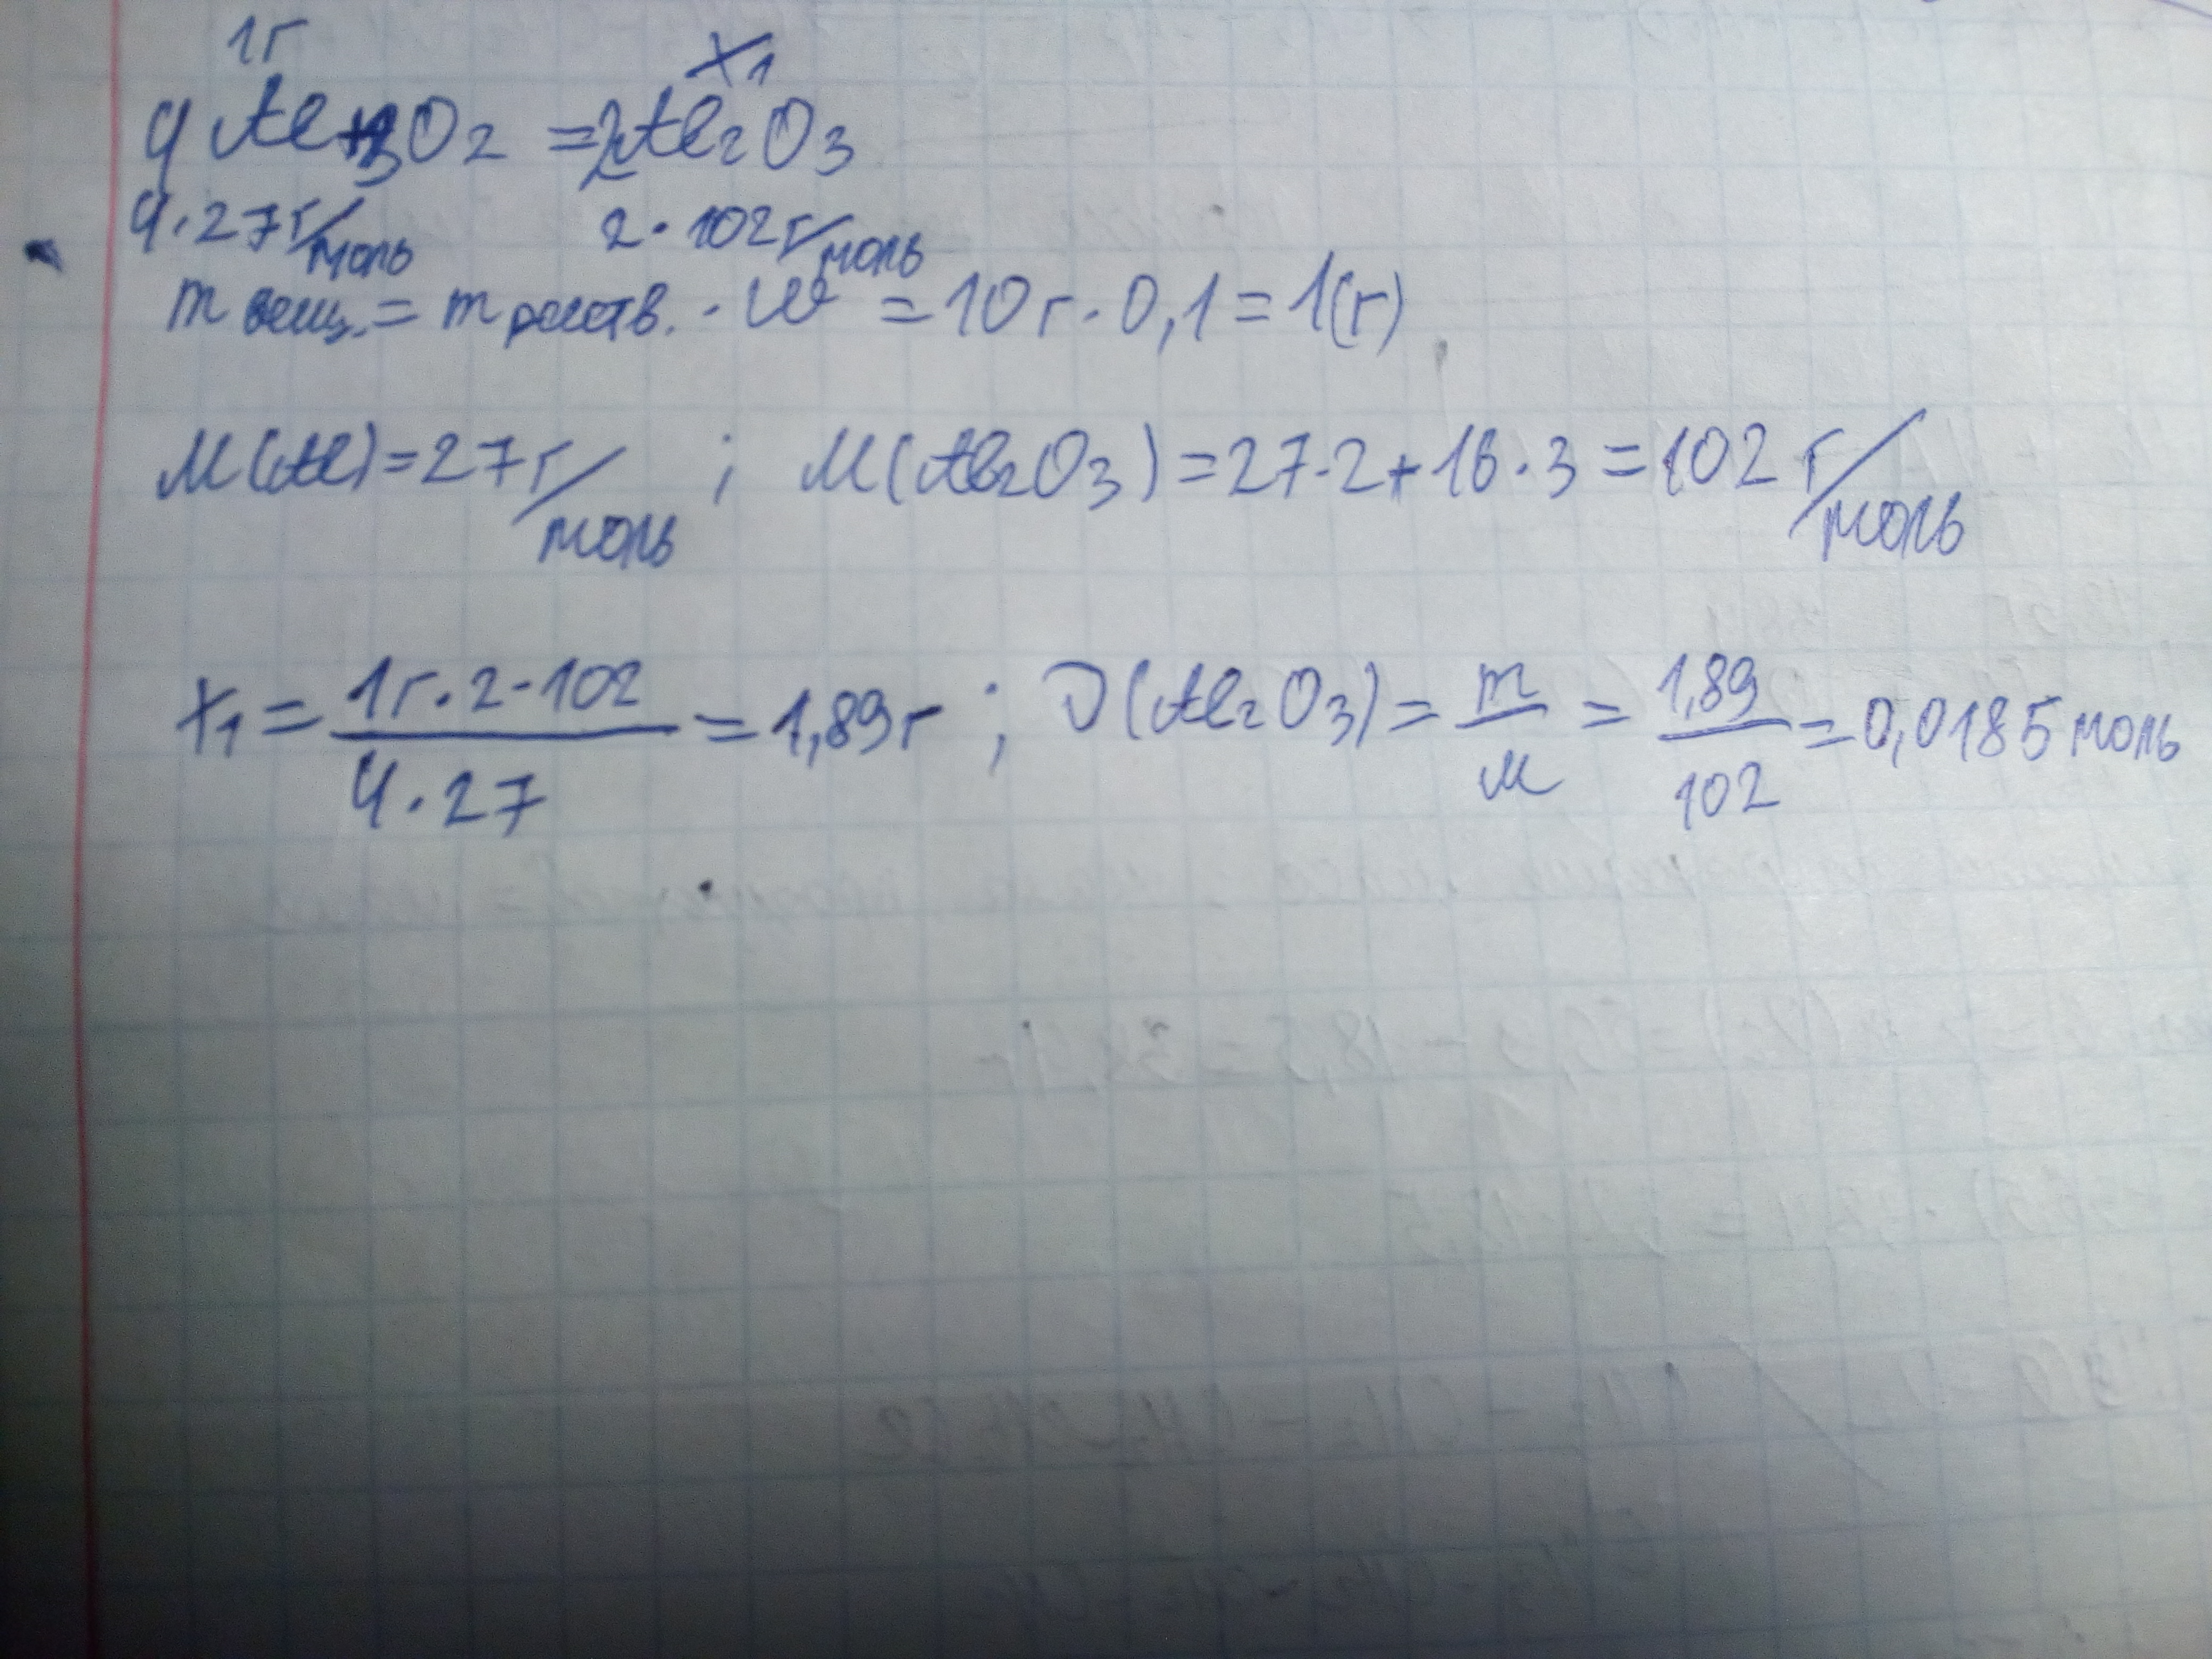 1г x₁
4Al+3O₂ =2Al₂O₃
4·27г/моль 2·102г/моль
m вещ. = m раств. · ω = 10г·0,1=1(г)
M(Al)=27г/моль ; M(Al₂O₃)=27·2+16·3=102 г/моль
x₁ = 1г·2·102 / 4·27 = 1,89г ; ν(Al₂O₃) = m/M = 1,89/102 = 0,0185 моль